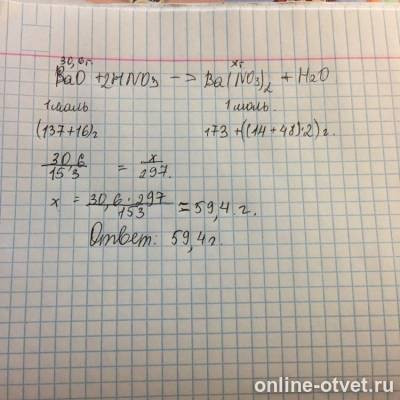 30,6г. xг
BaO + 2HNO3 —> Ba(NO3)2 + H2O
1 моль 1 моль.
(137+16)г 173 + ((14+48)·2) г.
30,6/153 = x/297.
x = 30,6·297/153 = 59,4 г.
Ответ: 59,4 г.
online-otvet.ru